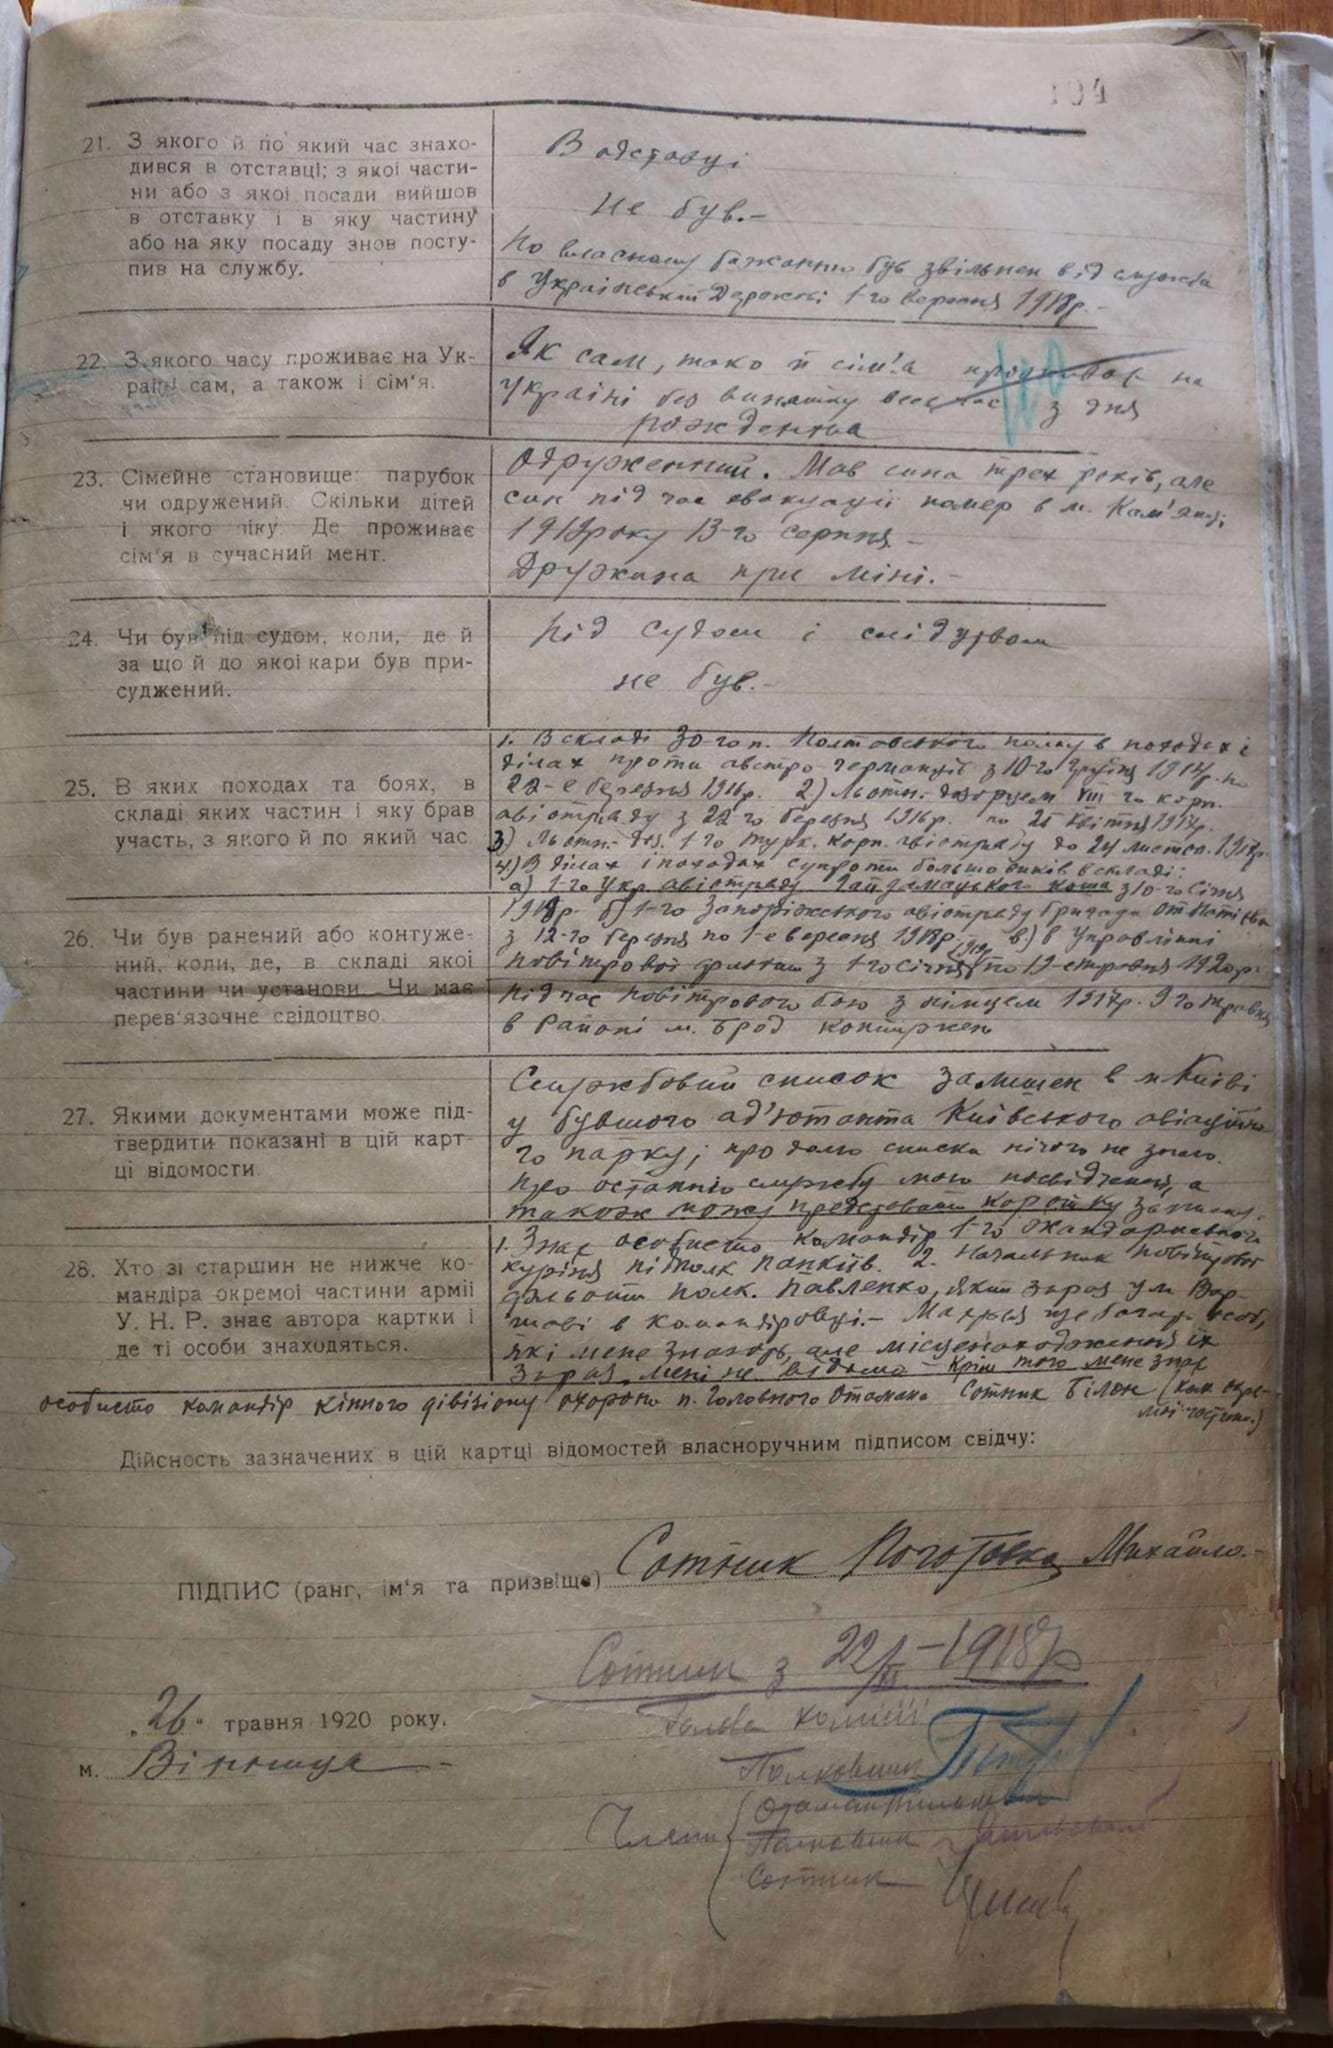 104
21. З якого й по який час знахо-
дився в отставці; з якої части-
ни або з якої посади вийшов
в отставку і в яку частину
або на яку посаду знов посту-
пив на службу.
В одставці
не був.-
По власному бажанню був звільнен від служби
в Українській Державі 1-го вересня 1918р.-
22. З якого часу проживає на Ук-
раїні сам, а також і сім'я.
Як сам, тако й сім'я на
Україні без винятку весь час з дня
рождення
23. Сімейне становище: парубок
чи одружений. Скільки дітей
і якого віку. Де проживає
сім'я в сучасний мент.
Одруженний. Мав сина трех років, але
син під час евакуації помер в м. Кам'янці
1919року 13-го серпня.-
Дружина при міні.-
24. Чи був під судом, коли, де й
за що й до якої кари був при-
суджений.
Під судом і слідством
не був.-
25. В яких походах та боях, в
складі яких частин і яку брав
участь, з якого й по який час.
1. В складі 30-го п. Полтавського полку в походах і
ділах проти австро-германців з 10-го 1914р. по
22-е березня 1916р. 2) Льотн. VIII го корп.
авіотряду з 22-го березня 1916р. по 25 квітня 1917р.
3) Льотн. 1-го турк. корп. авіотряду до 24 листоп. 1917р.
4) В ділах і походах супроти большовиків в складі:
а) 1-го Укр. авіотряду Гайдамацького Коша з 10-го січня
1918р. б) 1-го Запоріжського авіотряду бригади от. Натієва
з 12-го березня по 1-е вересня 1918р. в) в Управлінні
повітрової фльоти з 1-го січня 1919р. по 19-е травня 1920р.
26. Чи був ранений або контуже-
ний, коли, де, в складі якої
частини чи установи. Чи має
перев'язочне свідоцтво.
Під час повітрового бою з німцем 1917р. 9 го травня
в районі м. Брод контужен
27. Якими документами може під-
твердити показані в цій карт-
ці відомости.
Службовий список залишен в м. Київі
у бувшого ад'ютанта Київського авіаційно-
го парку; про долю списка нічого не знаю.
Про останню службу маю посвідчення, а
також можу представити коротку записку.
28. Хто зі старшин не нижче ко-
мандіра окремої частини армії
У. Н. Р. знає автора картки і
де ті особи знаходяться.
1. Знає особисто командір 1-го жандармського
куріня підполк. Папків. 2. Начальник повітрової
фльоти полк. Павленко, який зараз у м. Вар-
шаві в командіровці.- ще багато осіб,
які мене знають, але місцезнаходження їх
зараз мені не відомо - Крім того мене знає
особисто командір кінного дівізіону охорони п. Головного Отамана Сотник Білон (ком. окре-
мої частини)
Дійсность зазначених в цій картці відомостей власноручним підписом свідчу:
ПІДПИС (ранг, ім'я та призвіще) Сотник Поготовка Михайло.-
Сотник з 22/XI-1918р
„26" травня 1920 року.
м. Вінниця
Голова комісії
Полковник
Члени
Отаман
Полковник
Сотник